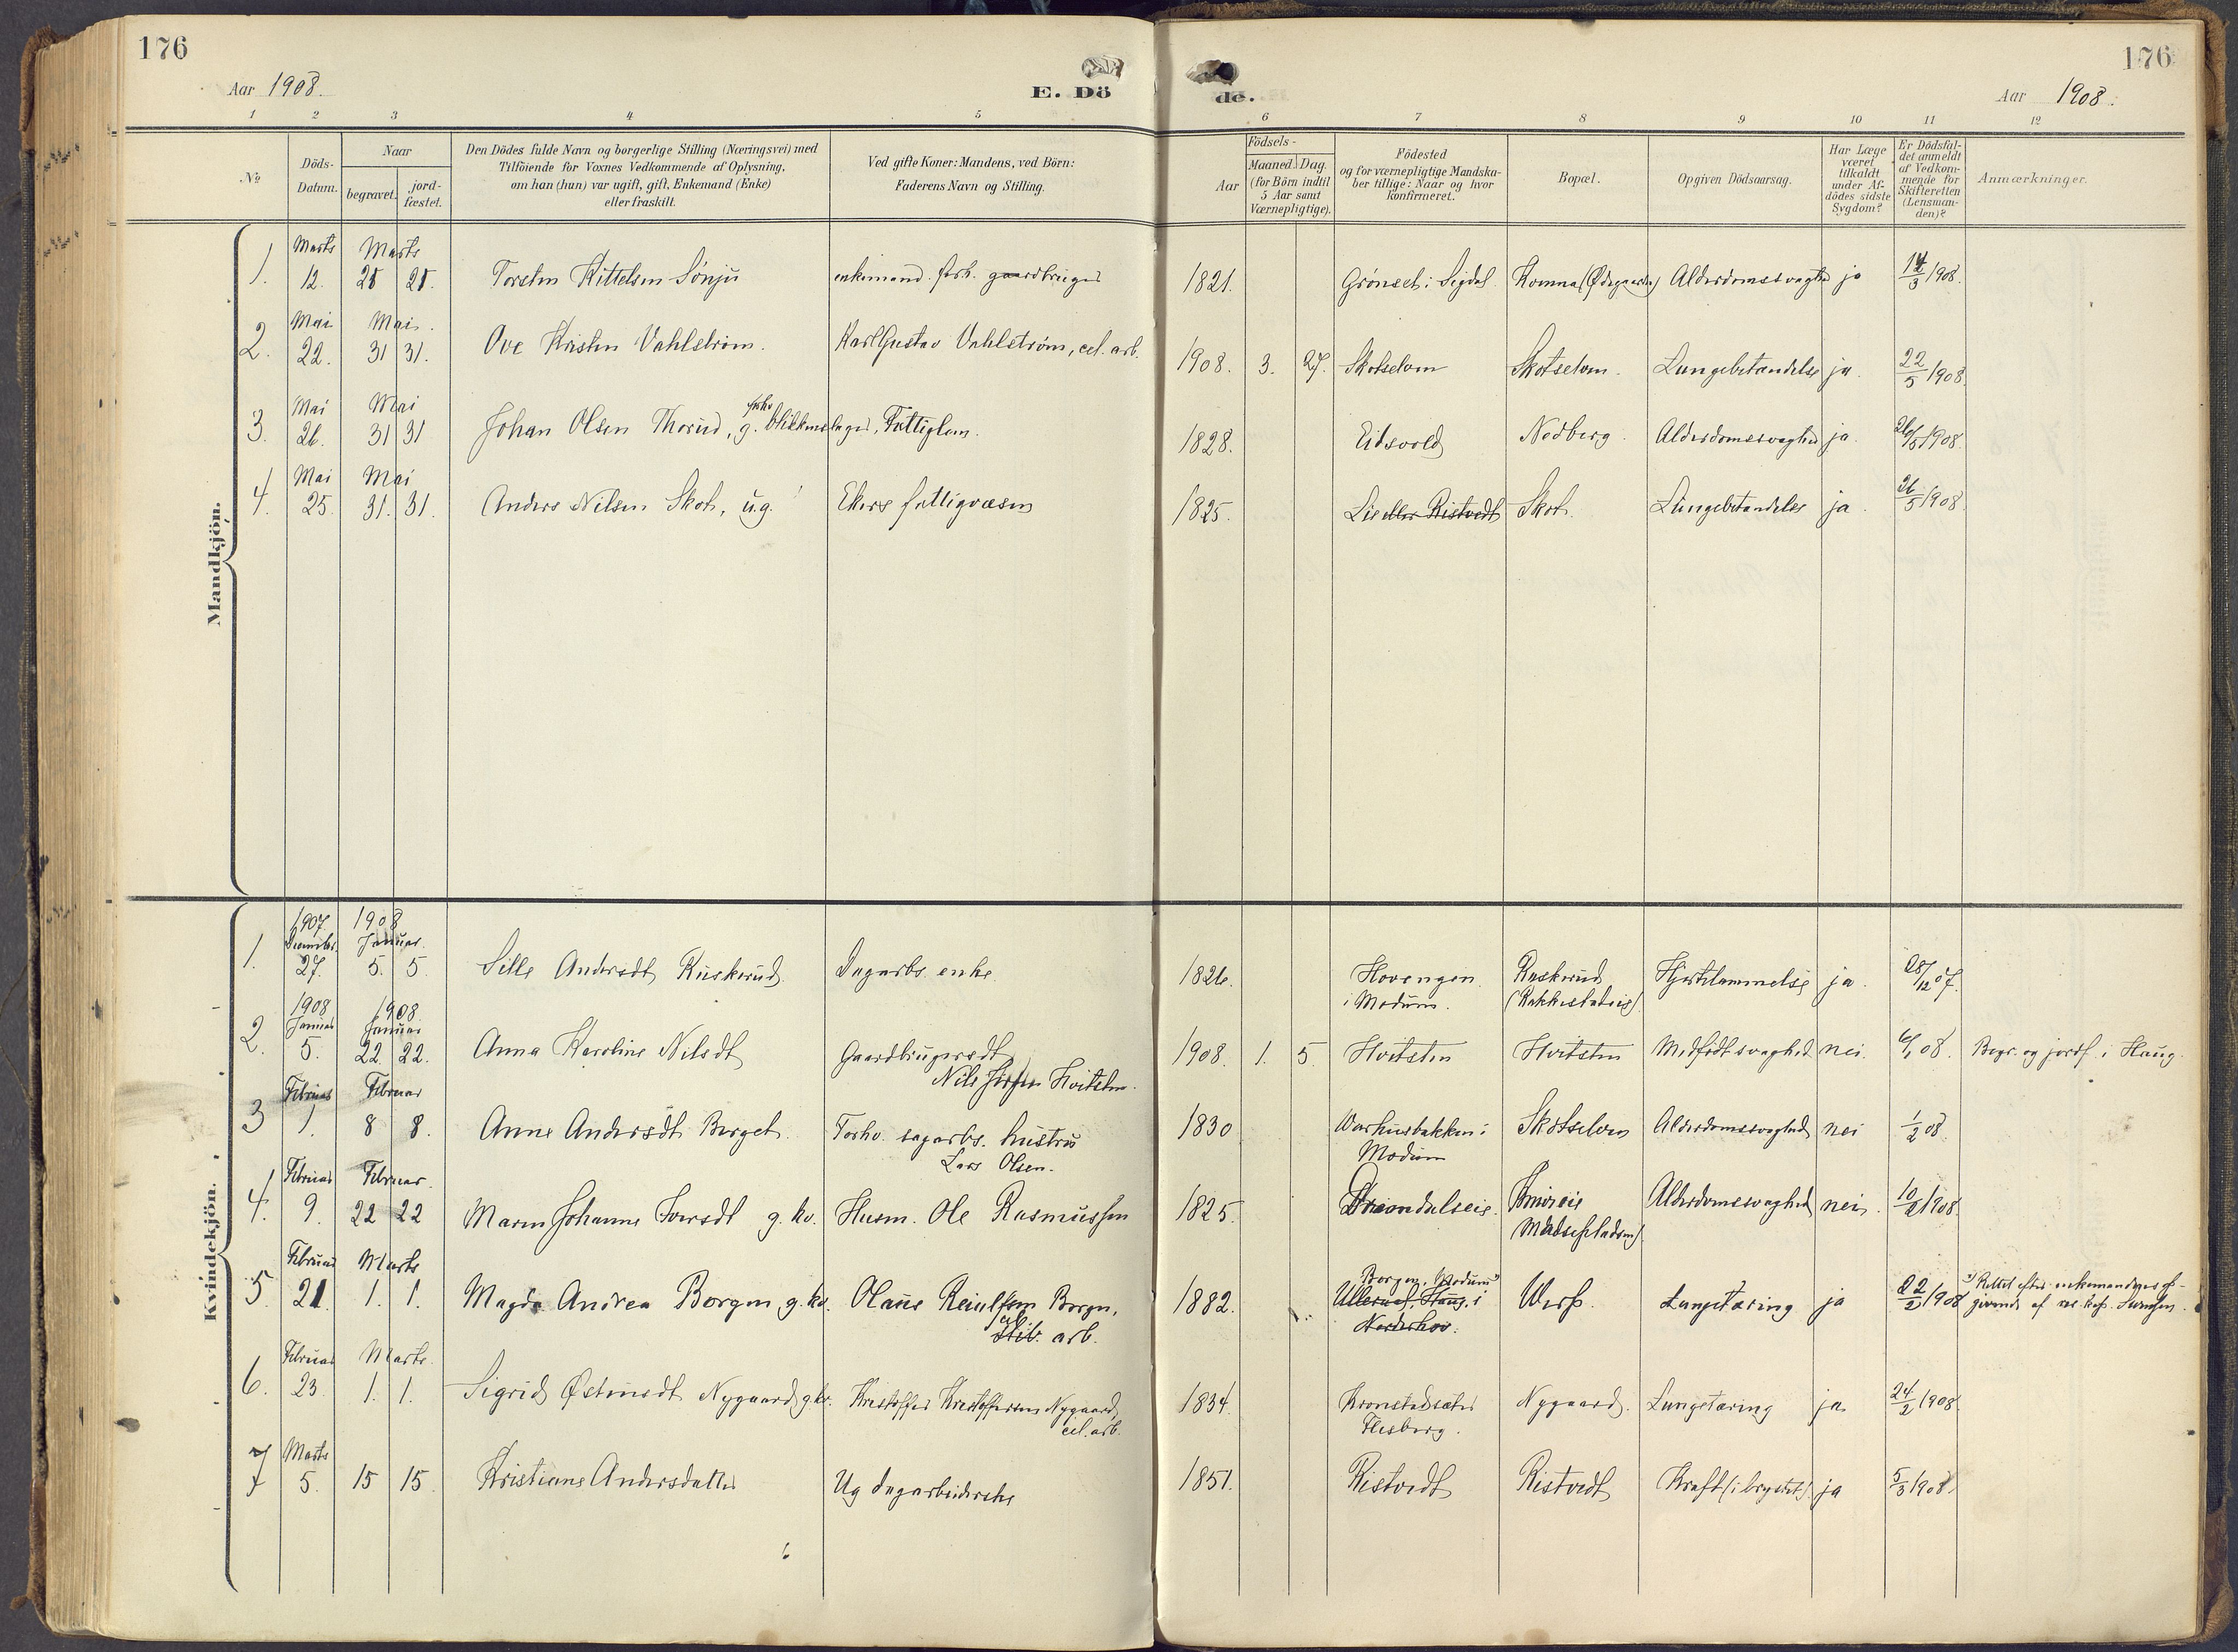 176
Aar 1908.
E. Dö
1 2 3 4 5
No
Döds-
Datum.
Naar
begravet.
jord-
fæstet.
Den Dödes fulde Navn og borgerlige Stilling (Næringsvei) med
Tilföiende for Voxnes Vedkommende af Oplysning,
om han (hun) var ugift, gift, Enkemand (Enke)
eller fraskilt.
Ved gifte Koner: Mandens, ved Börn:
Faderens Navn og Stilling.
176
Aar 1908.
de.
6 7 8 9 10 11 12
Födsels-
Aar
Maaned. Dag.
(for Börn indtil
5 Aar samt
Værnepligtige).
Födested
og for værnepligtige Mandska-
ber tillige: Naar og hvor
konfirmeret.
Bopæl.
Opgiven Dödsaarsag.
Har Læge
været
tilkaldt
under Af-
dödes sidste
Sygdom?
Er Dödsfal-
det anmeldt
af Vedkom-
mende for
Skifteretten
(Lensman-
den)?
Anmærkninger.
Mandkjön.
Marts Marts
1. 12. 21 21. Torsten Kittelsen Sønju enkemand. forh. gaardbruger 1821. Grønset i Sigdal. Komna (Ødegaarden) Alderdomssvaghed ja 14/3 1908.
Mai Mai.
2. 22. 31 31. Ove Kristen Vahlstrøm. Karl Gustav Vahlstrøm, cel. arb. 1908. 3. 27. Skotselven Skotselven. Lungebetændelse ja. 22/5 1908.
Mai Mai
forhv.
3. 26. 31 31 Johan Olsen Thorud, g. blikkenslager, Fattiglem. 1828. Eidsvold Nedberg. Alderdomssvaghed ja. 26/5 1908.
Mai Mai
4. 25. 31. 31. Anders Nilsen Skot, ug. Ekers fattigvæsen 1825. Lie eller Ristvedt Skot. Lungebetændelse ja. 26/5 1908.
Kvindekjön.
1907 1908
December. Januar.
1. 27. 5. 5. Sille Andersdt Ruskerud. Dagarbs. enke. 1826. Hovengen Ruskerud Hjertelammelse ja. 28/12 07.
i Modum.
1908 1908.
Januar Januar
2. 5. 22. 22. Anna Karoline Nilsdt Gaardbrugersdt 1908. 1. 5. Hvitsten Hvitsten Medfødt svaghed nei. 6/1 08. Begr. og jordf. i Haug.
Nils Hvitsten.
Februar Februar
3 1. 8 8. Anne Andersdt Berget. Forhv. sagarbs. hustru 1830 i Skotselven Alderdomssvaghed nei 1/2 08.
Lars Olsen. Modum
Februar Februar.
4. 9. 22 22 Maren Johanne Iversdt g. kv. Husm. Ole Rasmussen 1825. Alderdomssvaghed nei. 10/2 1908.
Februar Marts
Borgen, Modum
5. 21. 1. 1. Magda Andrea Borgen g. kv. Olaus Borgen, 1882. Ullernaf, Haug, i Lungetæring ja 22/2 1908 Rettet efter enkemandens
arb. Norderhov.
Februar Marts.
6. 23. 1. 1. Sigrid Østensdt Nygaard g. kv. Kristoffer Kristoffersen Nygaard, 1834. Nygaard. Lungetæring ja 24/2 1908.
cel. arb. Flesberg.
Marts
7 5. 15 15 Kristiane Andersdatter Ug dagarbeiderske 1851. Ristvedt Ristvedt Kræft (i brystet). ja 5/3 1908.